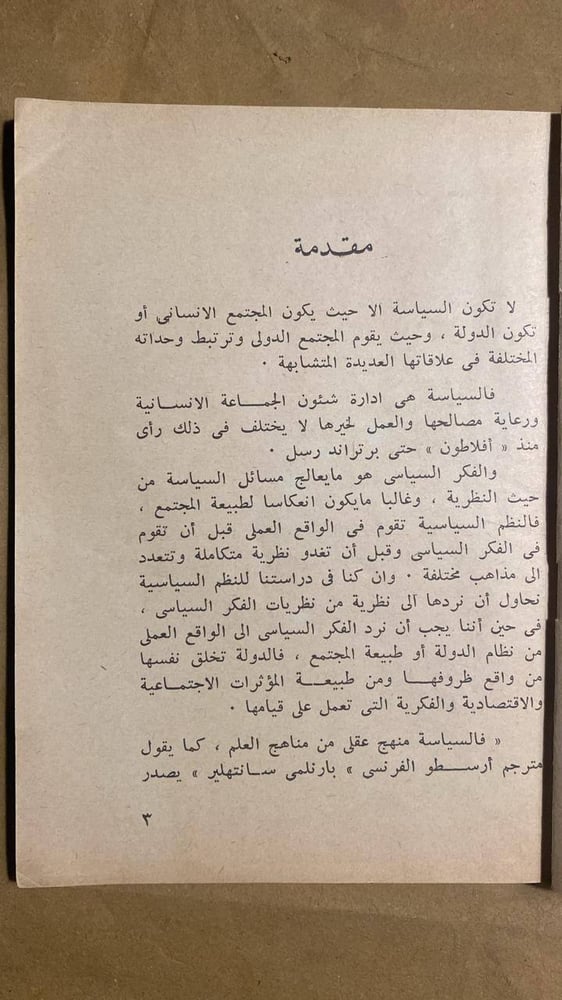 مقدمة
لا تكون السياسة الا حيث يكون المجتمع الانسانى أو
تكون الدولة ، وحيث يقوم المجتمع الدولى وترتبط وحداته
المختلفة فى علاقاتها العديدة المتشابهة ٠
فالسياسة هى ادارة شئون الجماعة الانسانية
ورعاية مصالحها والعمل لخيرها لا يختلف فى ذلك رأى
منذ « أفلاطون » حتى برتراند رسل ٠
والفكر السياسى هو مايعالج مسائل السياسة من
حيث النظرية ، وغالبا مايكون انعكاسا لطبيعة المجتمع ،
فالنظم السياسية تقوم فى الواقع العملى قبل أن تقوم
فى الفكر السياسى وقبل أن تغدو نظرية متكاملة وتتعدد
الى مذاهب مختلفة ٠ وان كنا فى دراستنا للنظم السياسية
نحاول أن نردها الى نظرية من نظريات الفكر السياسى ،
فى حين أننا يجب أن نرد الفكر السياسى الى الواقع العملى
من نظام الدولة أو طبيعة المجتمع ، فالدولة تخلق نفسها
من واقع ظروفها ومن طبيعة المؤثرات الاجتماعية
والاقتصادية والفكرية التى تعمل على قيامها ٠
« فالسياسة منهج عقلى من مناهج العلم ، كما يقول
مترجم أرسطو الفرنسى » بارنلمى سانتهلير » يصدر
٣